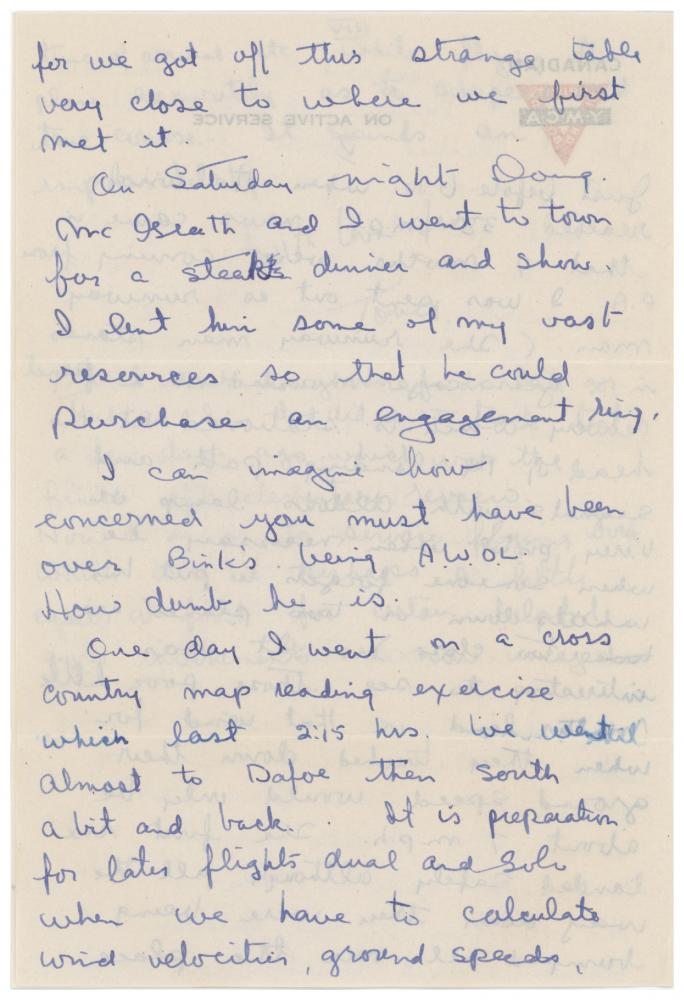 for we got off this strange table
very close to where we first
met it.
On Saturday night Doug.
Mc Ilrath and I went to town
for a steak dinner and show.
I lent him some of my vast
resources so that he could
purchase an engagement ring.
I can imagine how
concerned you must have been
over Bink's being A.W.O.L.
How dumb he is.
One day I went on a cross
country map reading exercise
which last 2:15 hrs. We went
almost to Dafoe then south
a bit and back. It is preparation
for later flights dual and solo
when we have to calculate
wind velocities, ground speeds,
CANADIAN
Y.M.C.A
ON ACTIVE SERVICE